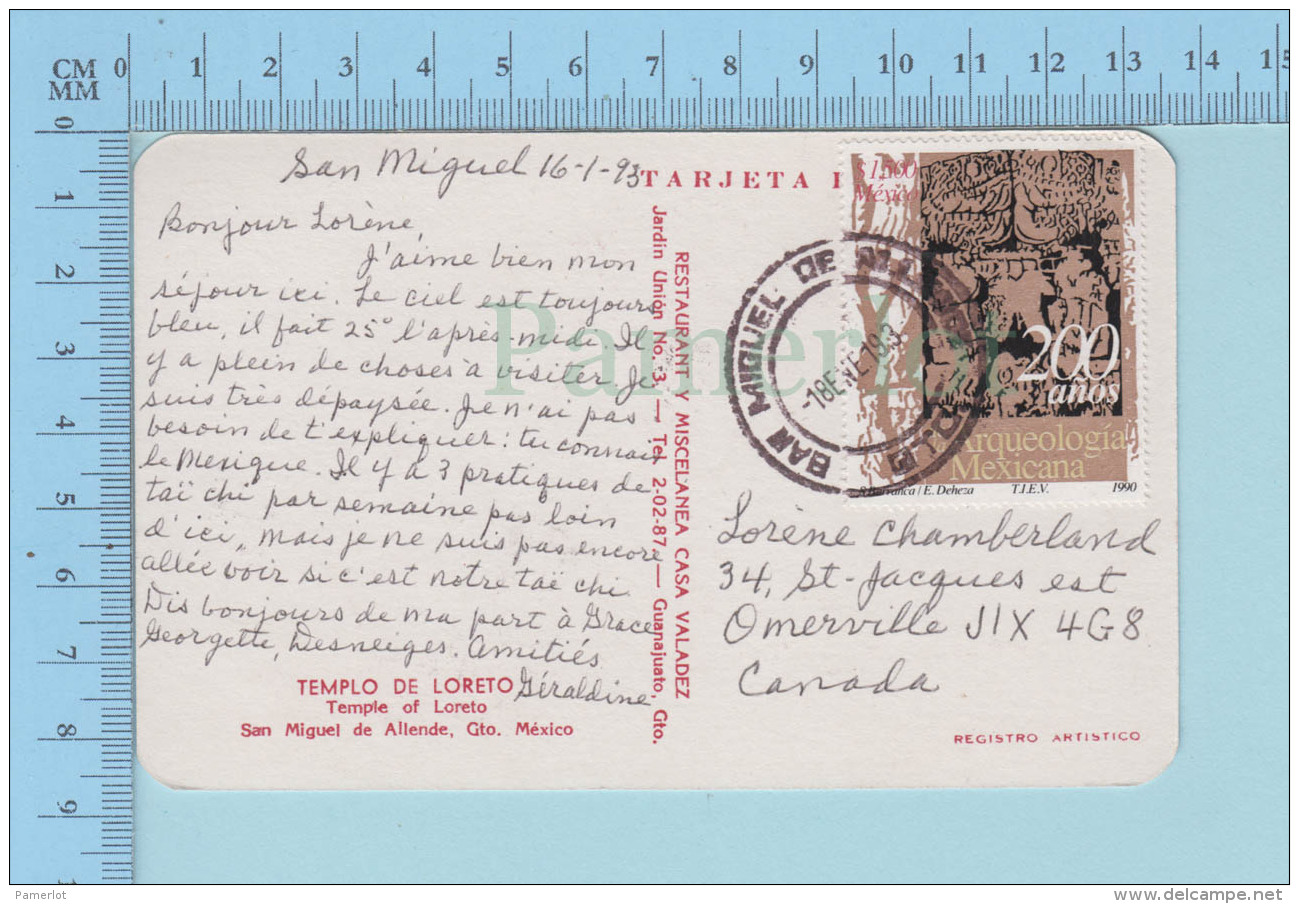 CM 0 1 2 3 4 5 6 7 8 9 10 11 12 13 14 15
MM
0
1
2
3
4
5
6
7
8
9
San Miguel 16-1-93
TARJETA
Bonjour Lorène,
J'aime bien mon
séjour ici. Le ciel est toujours
bleu, il fait 25° l'après-midi. Il
y a plein de choses à visiter. Je
suis très dépaysée. Je n'ai pas
besoin de t'expliquer: tu connais
le Mexique. Il y a 3 pratiques de
taï chi par semaine pas loin
d'ici, mais je ne suis pas encore
allée voir si c'est notre taï chi
Dis bonjours de ma part à Grace
Georgette, Desneiges. Amitiés
Géraldine
TEMPLO DE LORETO
Temple of Loreto
San Miguel de Allende, Gto. México
RESTAURANT Y MISCELANEA CASA VALADEZ
Jardín Unión No. 3, — Tel. 2-02-87 — Guanajuato, Gto.
$1,500
México
200
años
Arqueología
Mexicana
E. Deheza T.I.E.V. 1990
SAN MIGUEL DE
18 ENE 1993
Lorène Chamberland
34, St-Jacques est
Omerville J1X 4G8
Canada
REGISTRO ARTISTICO
Pamerlot
Pamerlot
www.delcampe.net